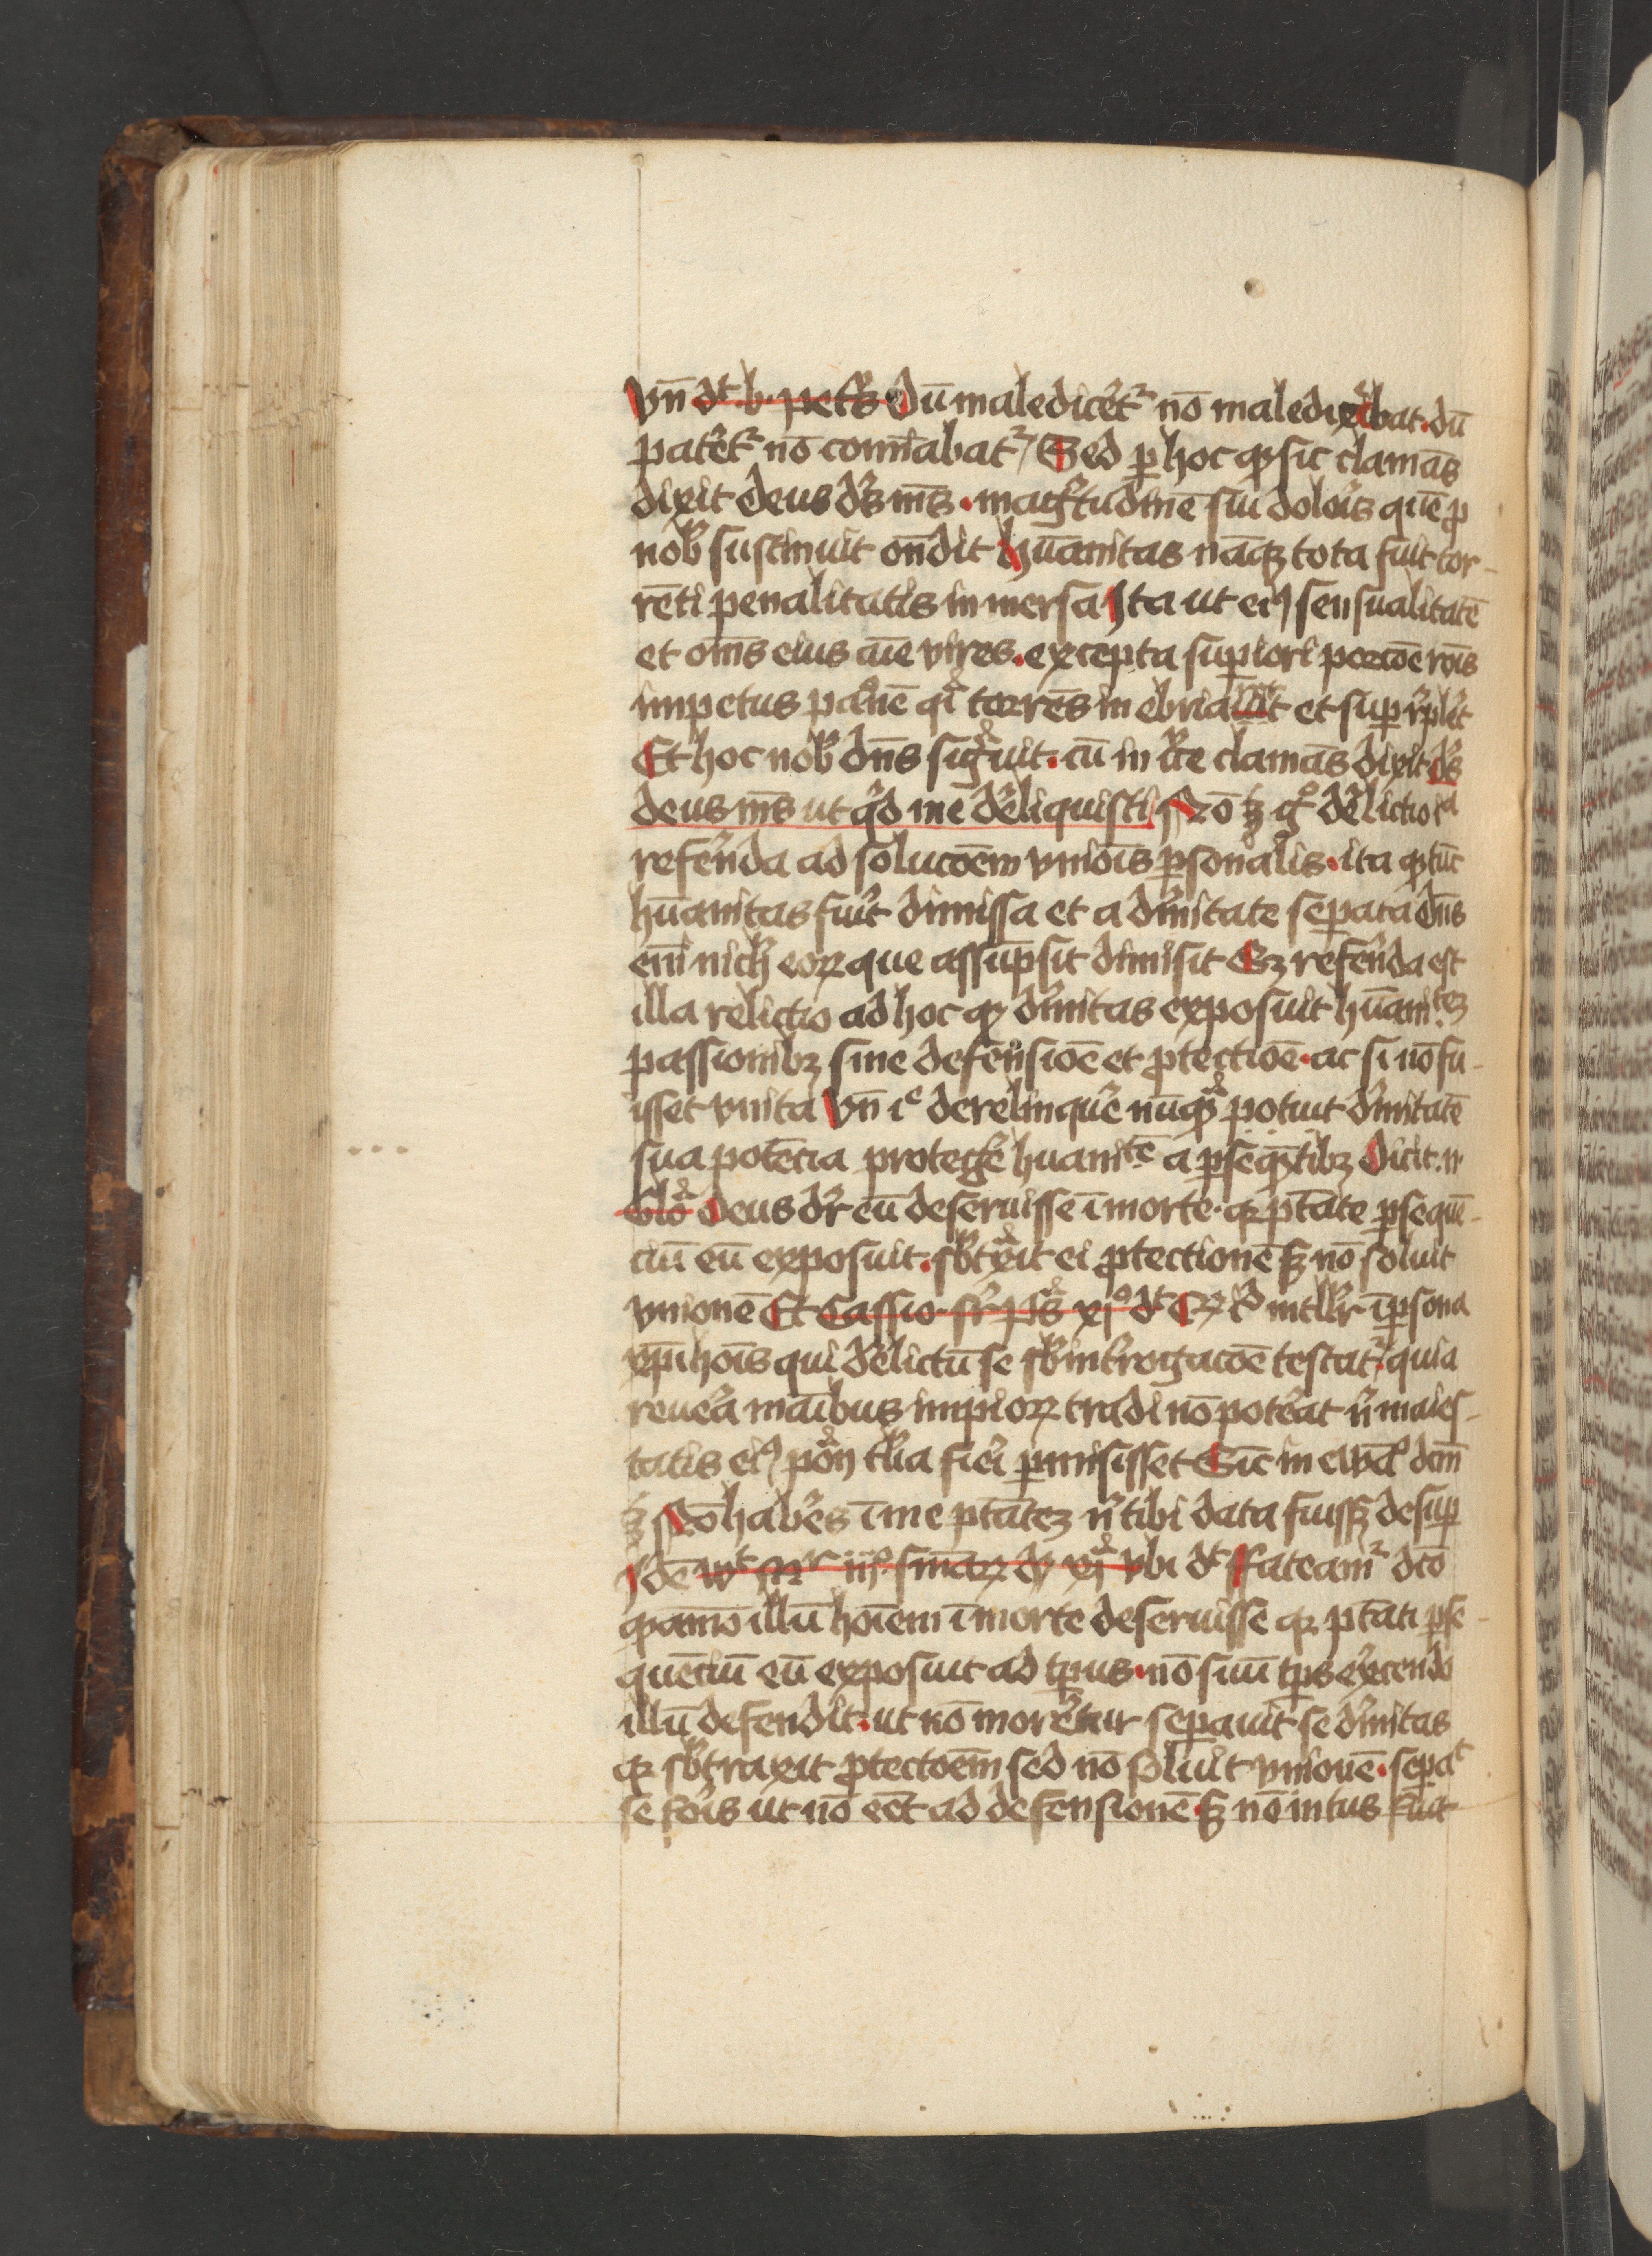 Vn̄ dt b. petrꝰ Dū maledicēt᷑ nō maledicebat. dū
patēt᷑ nō com̄iabat᷑ / Sed ꝑ hoc ꝙ sic clamās
dixit deus dꝰs mꝰs. magtudinē sui dolois quē ꝓ
nob sustinuit ondit hūanitas nāqꝫ tota fuit tor-
rēti penalitatis inmersa Ita ut eiꝰ sensualitatē
et oīns eius aīe vires. excepta suꝑiori porcōe rōis
impetus paōnē qi torrēs inebriaret et suꝑrplēt
Et hoc nob dn̄s sigauit. cū in cͥce clamās dixit. dꝰs
deus mꝰs ut qͥd me dēliquisti Nō tn̄ gͦ dēlictio id
refēnda ad solucōem vniois ꝑsonalis. ita ꝙ tūc
hūanitas fuit dimissa et a diuīnitate seꝑata dn̄s
eni nich eoꝝ que assūpsit dimisit Sꝫ refēnda est
illa relictio ad hoc ꝙ diuīnitas exposuit hūanitꝫ
passionibꝫ sine defensiōe et ꝓtectiōe. ac si nō fu-
isset vnita Vn̄ ic derelinquē nūqꝫ potuit diuīnitatē
sua potēcia protegē huanitē a ꝑseqntibꝫ Dicit. n
Deus dr̄ eū deseruisse ī morte. qꝛ ptate ꝑsequē-
ciū eū exposuit. sbtxit ei ꝓtectionē sꝫ nō soluit
vnionē Et Cassio. sr̄ ps xjͦ dt intllr ī ꝑsona
xp̄i hoīs qui dēlictū se sb introgacōe testat᷑. quia
reuēa manibus impioꝝ tradi nō potēat nͥ maies-
tatis eiꝰ talia fiēi ꝑmisisset Sic in ewāͦ dcm̄
ē Nō habēs ī me ptatēꝫ nͥ tibi data fuissꝫ desuꝑ
Idē iijͦ smāꝝ dꝰ xj vbi dt ffateam᷑ dcō
qāmō illū hoīem ī morte deseruisse qꝛ ptati ꝑse-
quēciū eū exposuit ad tp̄us. nō suū tp̄s exꝫcendo
illū defendit. ut nō morētur seꝑauit se diuīnitas
qꝛ sbtraxit ꝓtectoēm sed nō soluit vnionē. seꝑat
se fois ut nō eēt ad defensionē sꝫ nō intus fuit